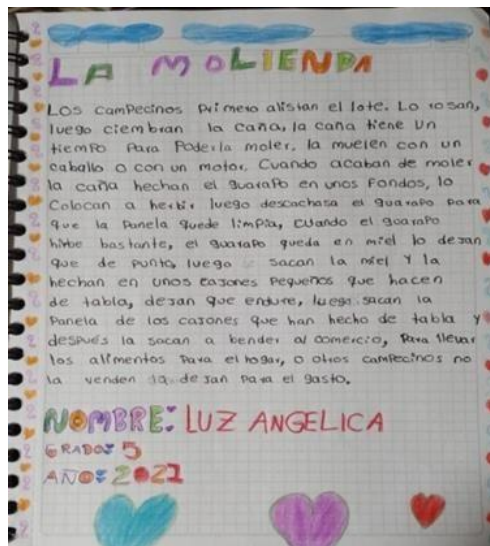 LA MOLIENDA
Los campecinos primero alistan el lote. Lo rosan,
luego ciembran la caña, la caña tiene un
tiempo para poderla moler, la muelen con un
caballo o con un motor, Cuando acaban de moler
la caña hechan el guarapo en unos fondos, lo
Colocan a herbir luego descachasa el guarapo para
que la Panela quede limpia, cuando el goarapo
hirbe bastante, el guarapo queda en miel lo dejan
que de punto, luego sacan la miel y la
hechan en unos cajones pequeños que hacen
de tabla, dejan que endure, luego sacan la
Panela de los cajones que han hecho de tabla y
después la sacan a bender al comercio, Para llevar
los alimentos para el hogar, o otros campecinos no
la venden la dejan para el gasto.
NOMBRE: LUZ ANGELICA
GRADO: 5
AÑO: 2021